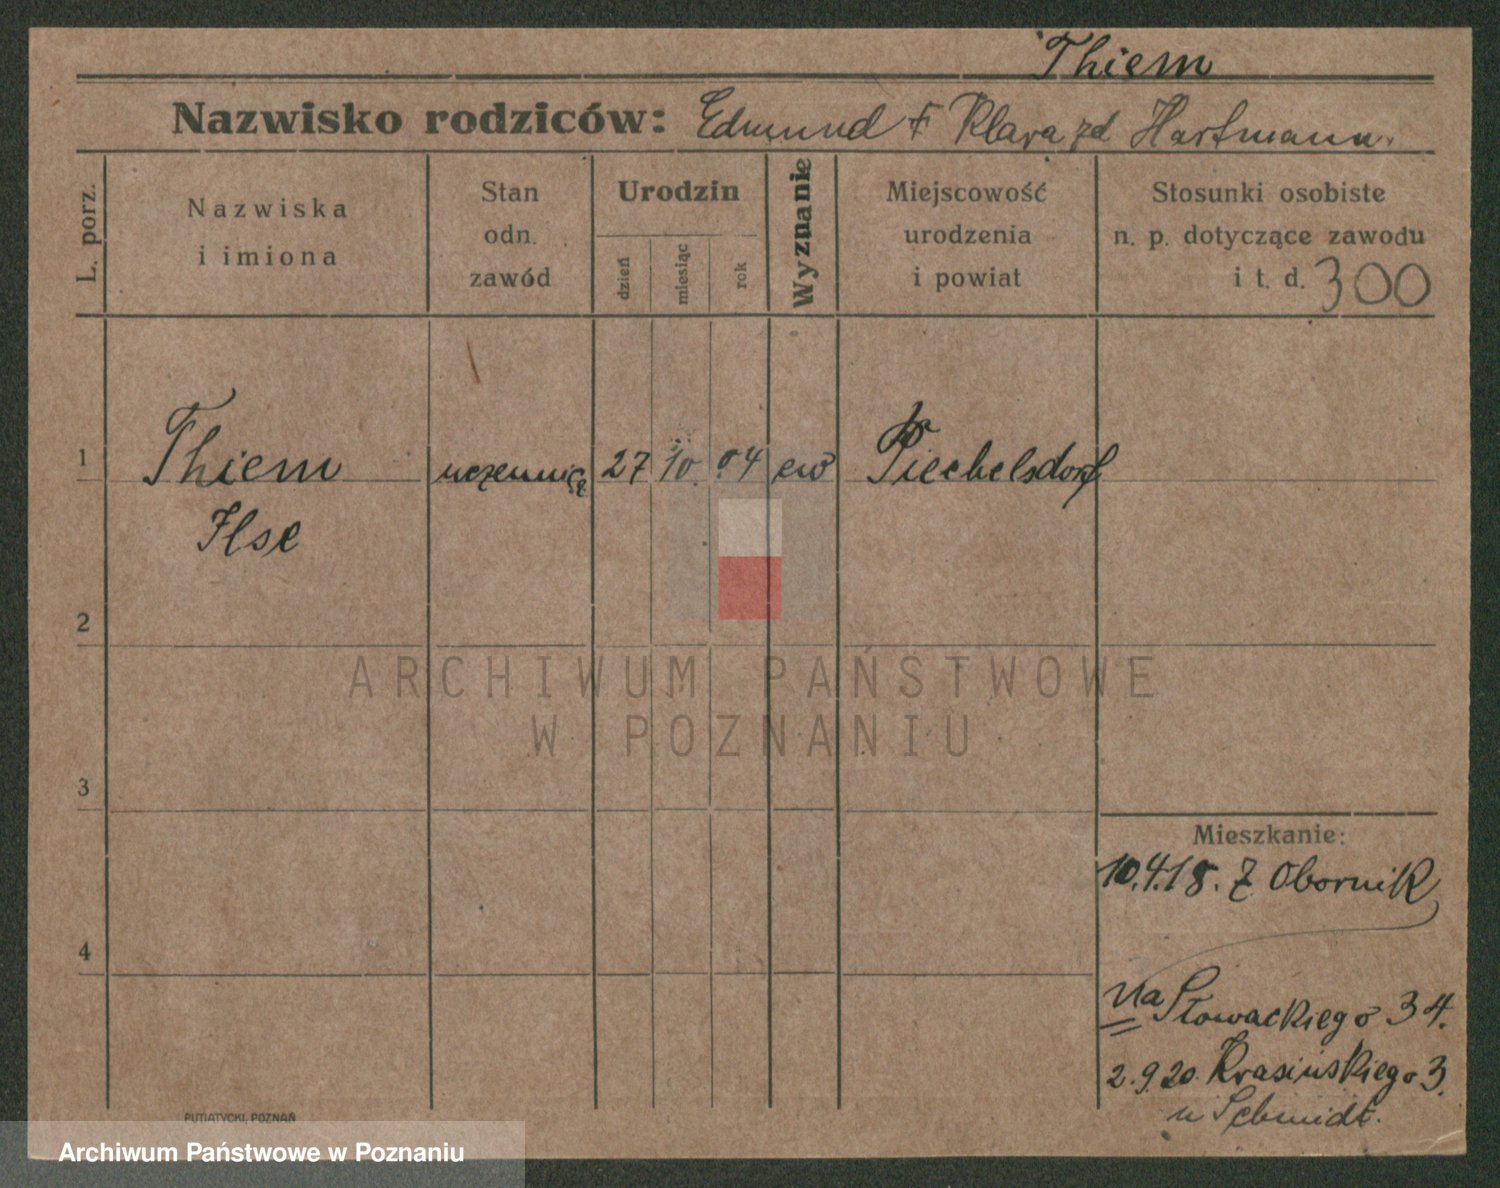 Thiem
Nazwisko rodziców: Edmund F Klara zd Hartmann.
L. porz.
Nazwiska
i imiona
Stan
odn.
zawód
Urodzin
dzień
miesiąc
rok
Wyznanie
Miejscowość
urodzenia
i powiat
Stosunki osobiste
n. p. dotyczące zawodu
i t. d. 300
1 Thiem uczennicą 27 10. 04 ew Piechelsdorf
Ilse
2
ARCHIWUM PAŃSTWOWE
W POZNANIU
3
Mieszkanie:
10.4.18. Z Obornik
4
Ula Słowackiego 34.
2.9.20. Krasińskiego 3.
u Schmidt.
PUTIATYCKI, POZNAŃ
Archiwum Państwowe w Poznaniu